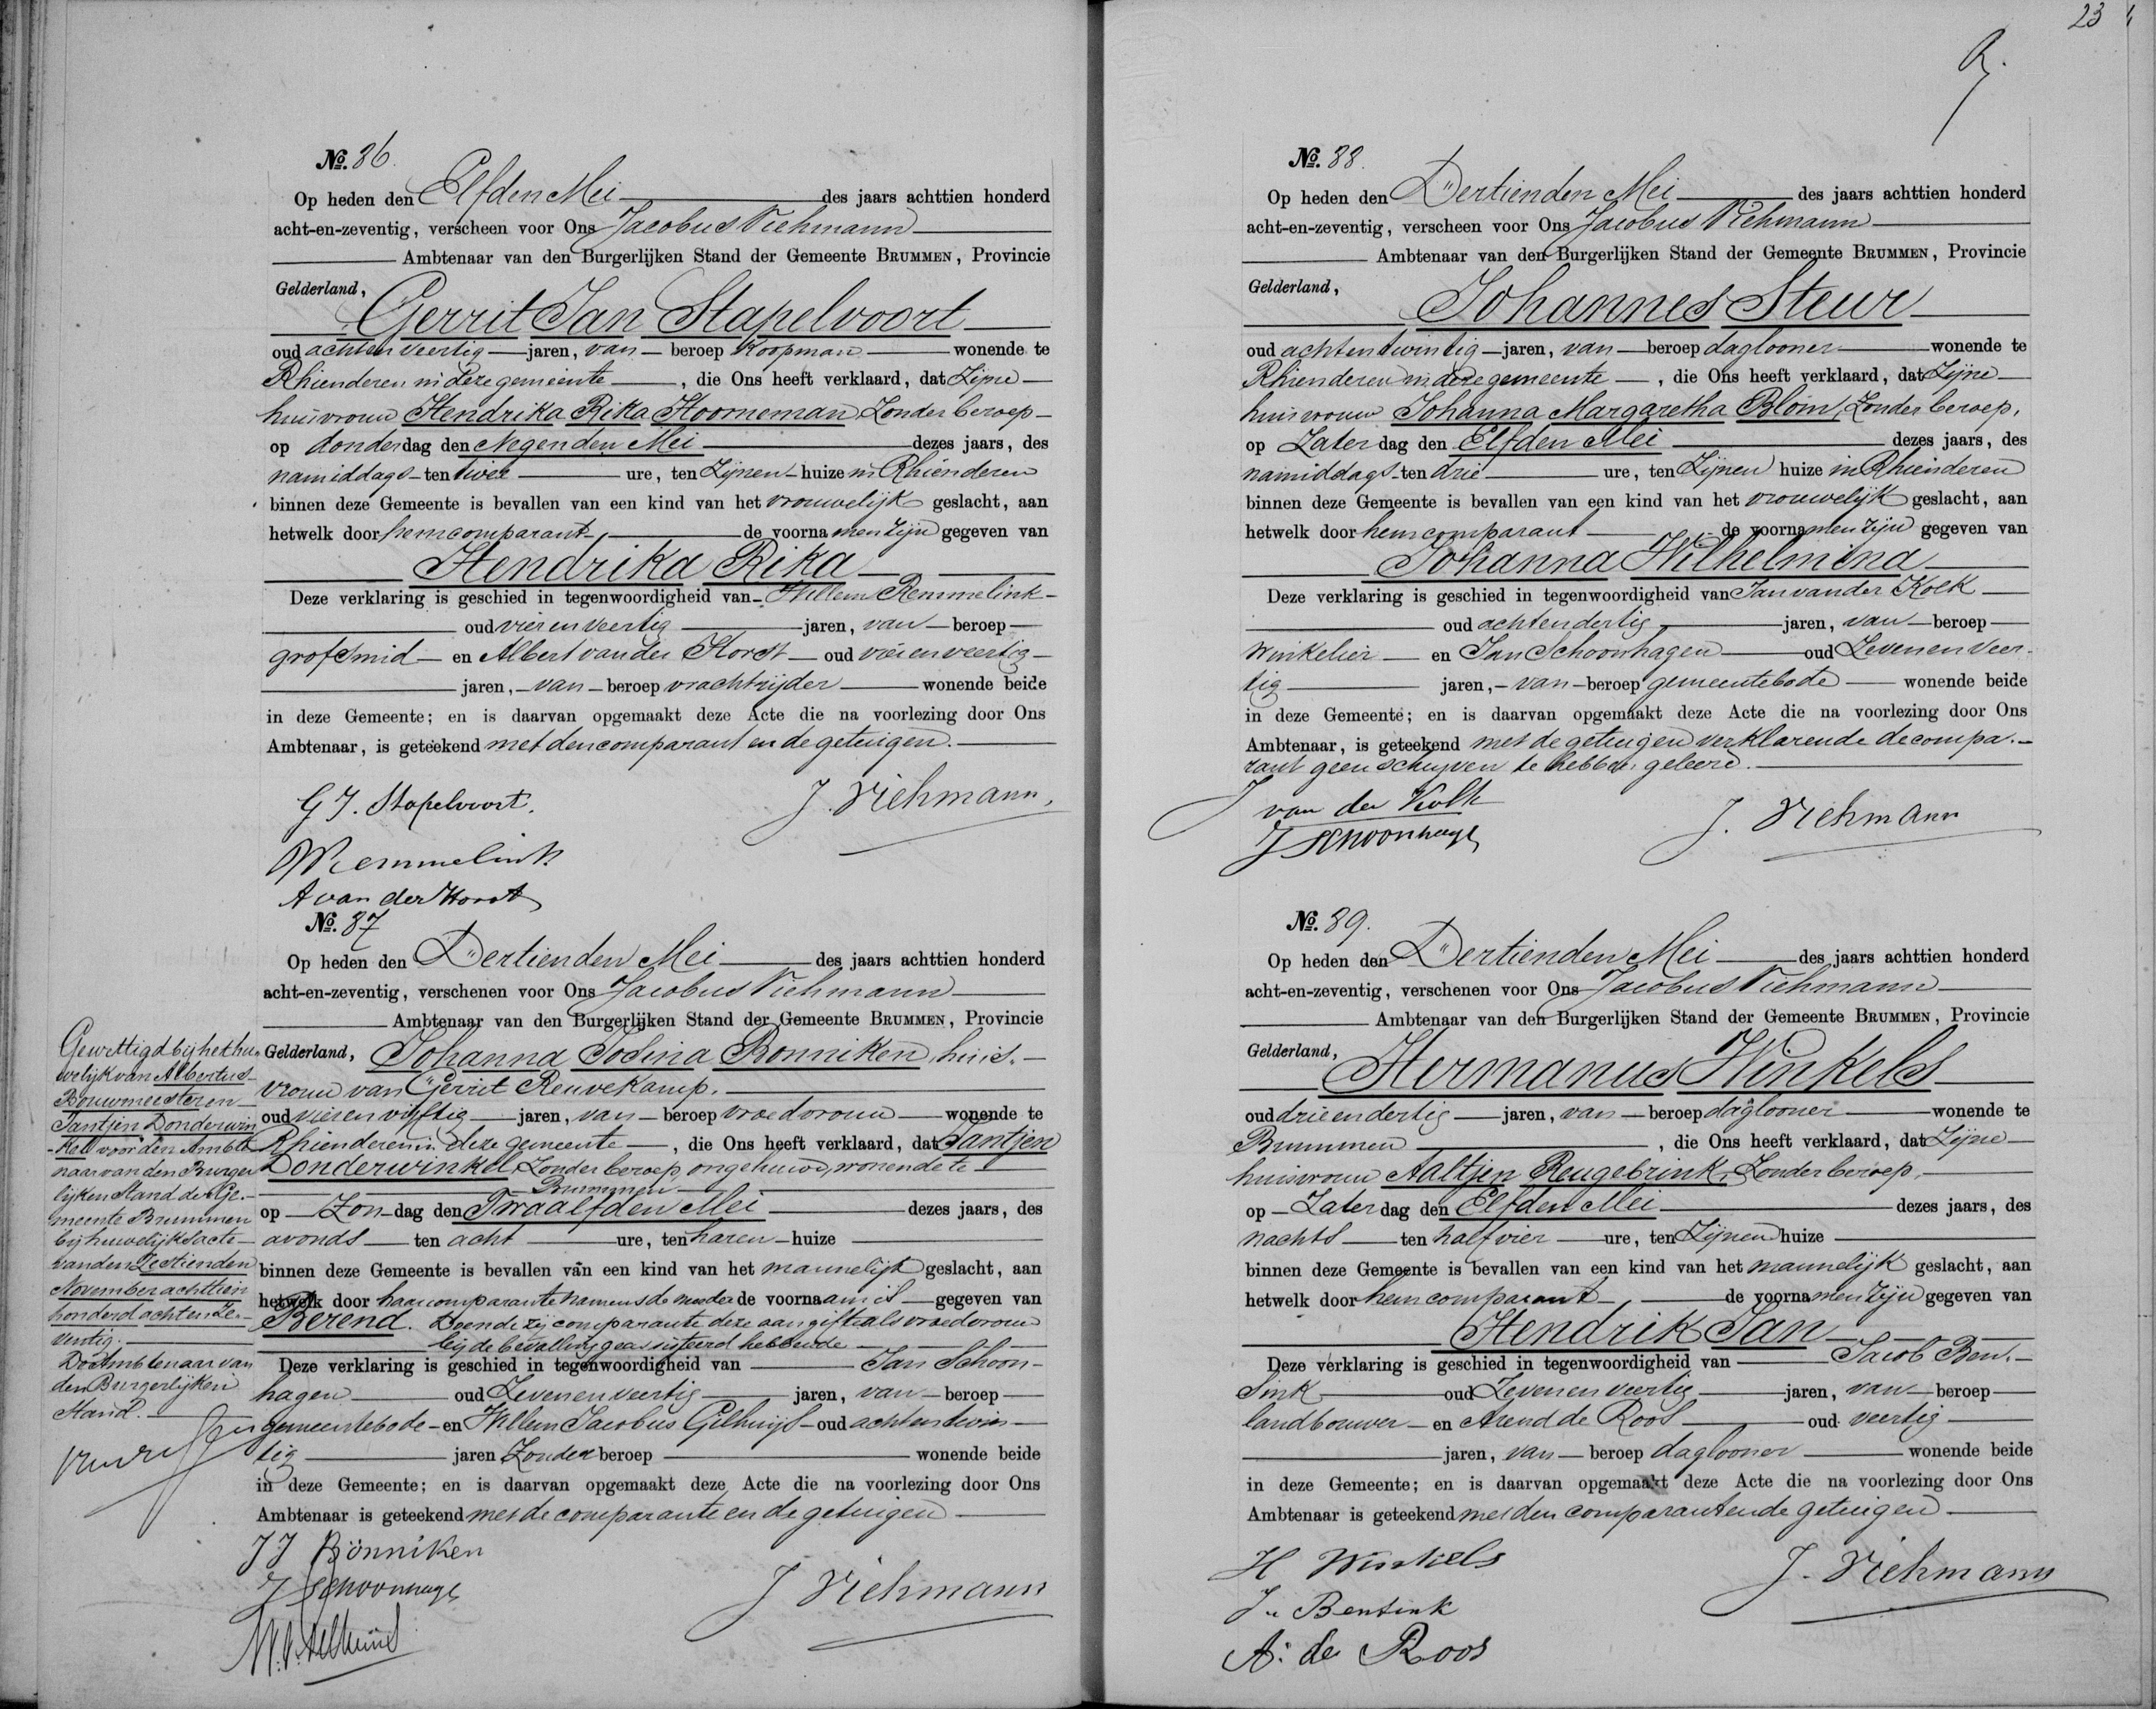 23
No. 86.
Op heden den Elfden Mei des jaars achttien honderd
acht-en-zeventig, verscheen voor Ons Jacobus Viehmann
Ambtenaar van den Burgerlijken Stand der Gemeente BRUMMEN, Provincie
Gelderland,
Gerrit Jan Stapelvoort
oud achtenveertig jaren, van beroep Koopman wonende te
Rhienderen in deze gemeente, die Ons heeft verklaard, dat Zijne
huisvrouw Hendrika Rika Hoorneman, Zonder beroep
op donderdag den Negenden Mei dezes jaars, des
namiddags ten twee ure, ten Zijnen huize in Rhienderen
binnen deze Gemeente is bevallen van een kind van het vrouwelijk geslacht, aan
hetwelk door hem comparant, de voornamen zijn gegeven van
Hendrika Rika
Deze verklaring is geschied in tegenwoordigheid van Willem Remmelink
oud vierenveertig jaren, van beroep
grofsmid en Albert van der Horst oud vierenveertig
jaren, van beroep vrachtrijder wonende beide
in deze Gemeente; en is daarvan opgemaakt deze Acte die na voorlezing door Ons
Ambtenaar, is geteekend met den comparant en de getuigen.
G J. Stapelvoort.
J. Viehmann.
W Remmelink
A van der Horst
No. 87
Op heden den Dertienden Mei des jaars achttien honderd
acht-en-zeventig, verschenen voor Ons Jacobus Viehmann
Ambtenaar van den Burgerlijken Stand der Gemeente BRUMMEN, Provincie
Gelderland, Johanna Josina Bonniken, huis-
vrouw van Gerrit Reuvekamp.
oud vierenvijftig jaren, van beroep vroedvrouw wonende te
Rhienderen in deze gemeente, die Ons heeft verklaard, dat Jantjen
Donderwinkel, Zonder beroep, ongehuwd, wonende te
Brummen
op Zondag den Twaalfden Mei dezes jaars, des
avonds ten acht ure, ten haren huize
binnen deze Gemeente is bevallen van een kind van het mannelijk geslacht, aan
hetwelk door haar comparante namens de moeder de voornaam is gegeven van
Berend. Doende zij comparante deze aangifte als vroedvrouw
bij de bevalling geassisteerd hebbende
Deze verklaring is geschied in tegenwoordigheid van Jan Schoon-
hagen oud Zevenenveertig jaren, van beroep
gemeentebode en Willem Jacobus Gelhuijs oud achtentwin-
tig jaren Zonder beroep wonende beide
in deze Gemeente; en is daarvan opgemaakt deze Acte die na voorlezing door Ons
Ambtenaar is geteekend met de comparante en de getuigen
J J Bönniken
J Schoonhage
J Viehmann
Gewettigd bij het hu-
welijk van Albertus
Bouwmeester en
Jantjen Donderwin
-kel voor den Ambte
naar van den Burger
lijken Stand der Ge-
meente Brummen
bij huwelijksacte
van den Zestienden
November achttien
honderd achtenze-
ventig.
De Ambtenaar van
den Burgerlijken
Stand.
No. 88.
Op heden den Dertienden Mei des jaars achttien honderd
acht-en-zeventig, verscheen voor Ons Jacobus Viehmann
Ambtenaar van den Burgerlijken Stand der Gemeente BRUMMEN, Provincie
Gelderland,
Johannes Steur
oud achtentwintig jaren, van beroep daglooner wonende te
Rhienderen in deze gemeente, die Ons heeft verklaard, dat Zijne
huisvrouw Johanna Margaretha Blom, Zonder beroep,
op Zaterdag den Elfden Mei dezes jaars, des
namiddags ten drie ure, ten Zijnen huize in Rhienderen
binnen deze Gemeente is bevallen van een kind van het vrouwelijk geslacht, aan
hetwelk door hem comparant de voornamen zijn gegeven van
Johanna Wilhelmina
Deze verklaring is geschied in tegenwoordigheid van Jan van der Kolk
oud achtendertig jaren, van beroep
Winkelier en Jan Schoonhagen oud Zevenenveer-
tig jaren, van beroep gemeentebode wonende beide
in deze Gemeente; en is daarvan opgemaakt deze Acte die na voorlezing door Ons
Ambtenaar, is geteekend met de getuigen verklarende de compa-
rant geen schrijven te hebben geleerd.
J van der Kolk
J Schoonhage
J. Viehmann
No. 89.
Op heden den Dertienden Mei des jaars achttien honderd
acht-en-zeventig, verschenen voor Ons Jacobus Viehmann
Ambtenaar van den Burgerlijken Stand der Gemeente BRUMMEN, Provincie
Gelderland,
Hermanus Winkels
oud drieendertig jaren, van beroep daglooner wonende te
Brummen, die Ons heeft verklaard, dat Zijne
huisvrouw Aaltjen Reugebrink, Zonder beroep,
op Zaterdag den Elfden Mei dezes jaars, des
nachts ten half vier ure, ten Zijnen huize
binnen deze Gemeente is bevallen van een kind van het mannelijk geslacht, aan
hetwelk door hem comparant, de voornamen zijn gegeven van
Hendrik Jan
Deze verklaring is geschied in tegenwoordigheid van Jacob Ben-
sink oud Zevenenveertig jaren, van beroep
landbouwer en Arend de Roos oud veertig
jaren, van beroep daglooner wonende beide
in deze Gemeente; en is daarvan opgemaakt deze Acte die na voorlezing door Ons
Ambtenaar is geteekend met den comparant en de getuigen
H Winkels
J. Bensink
J. Viehmann
A. de Roos